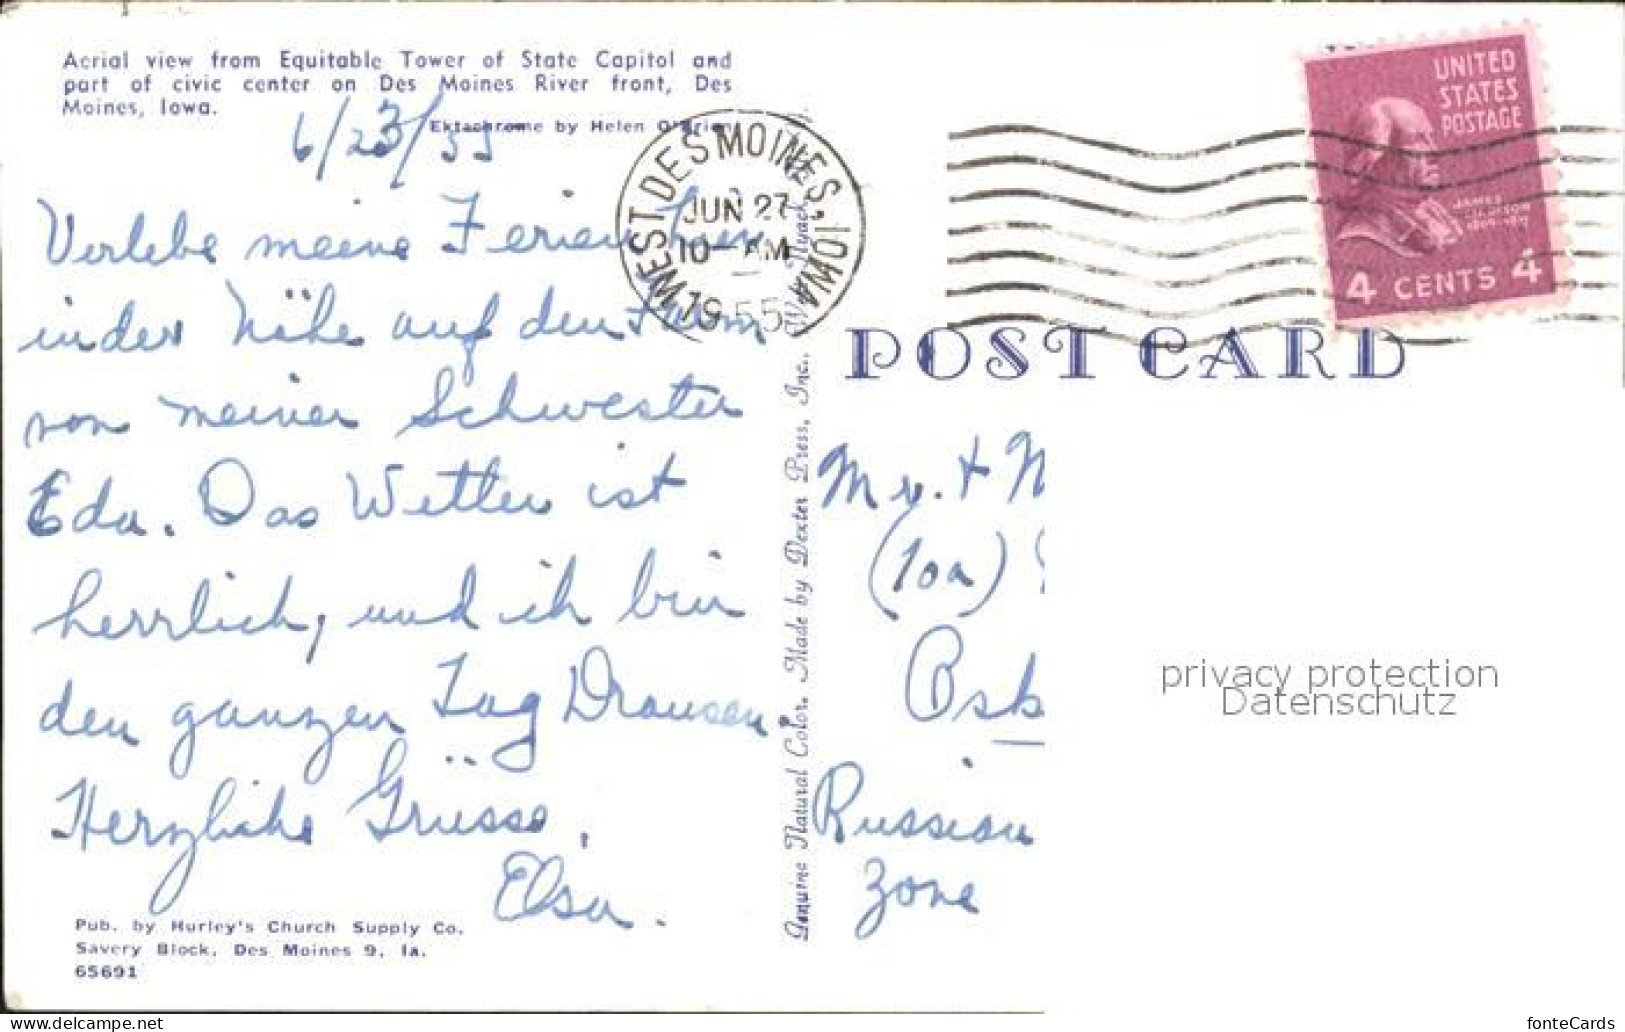 Aerial view from Equitable Tower of State Capitol and
part of civic center on Des Moines River front, Des
Moines, Iowa.
Ektachrome by Helen O'Brien
6/23/55
Verlebe meine Ferien hier
in der Nähe auf den Farm
von meiner Schwester
Eda. Das Wetter ist
herrlich, und ich bin
den ganzen Tag Drausen.
Herzliche Grüsse,
Elsa.
Pub. by Hurley's Church Supply Co.
Savery Block, Des Moines 9, Ia.
65691
WEST DES MOINES, IOWA
JUN 27
10- AM
1955
Genuine Natural Color. Made by Dexter Press, Inc., West Nyack,
UNITED
STATES
POSTAGE
JAMES
MADISON
4 CENTS 4
POST CARD
Mr. + M
(10a)
Osk
Russian
Zone
privacy protection
Datenschutz
https://www.delcampe.net
fonteCards